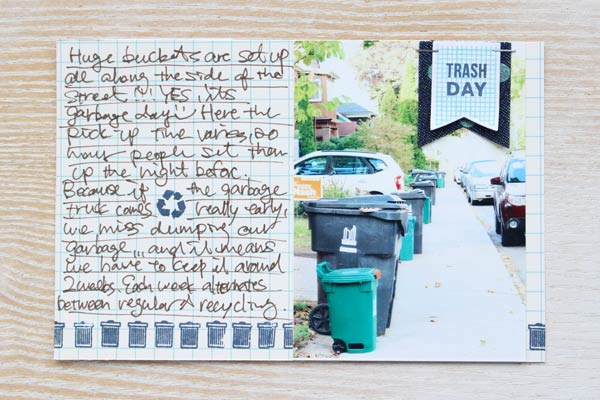 Huge buckets are set up
all along the side of the
street!! YES, its
garbage day! Here the
pick up time varies, so
most people set them
up the night before.
Because if the garbage
truck comes really early,
we miss dumping our
garbage... and it means
we have to keep it around
2 weeks. Each week alternates
between regular & recycling.
TRASH
DAY